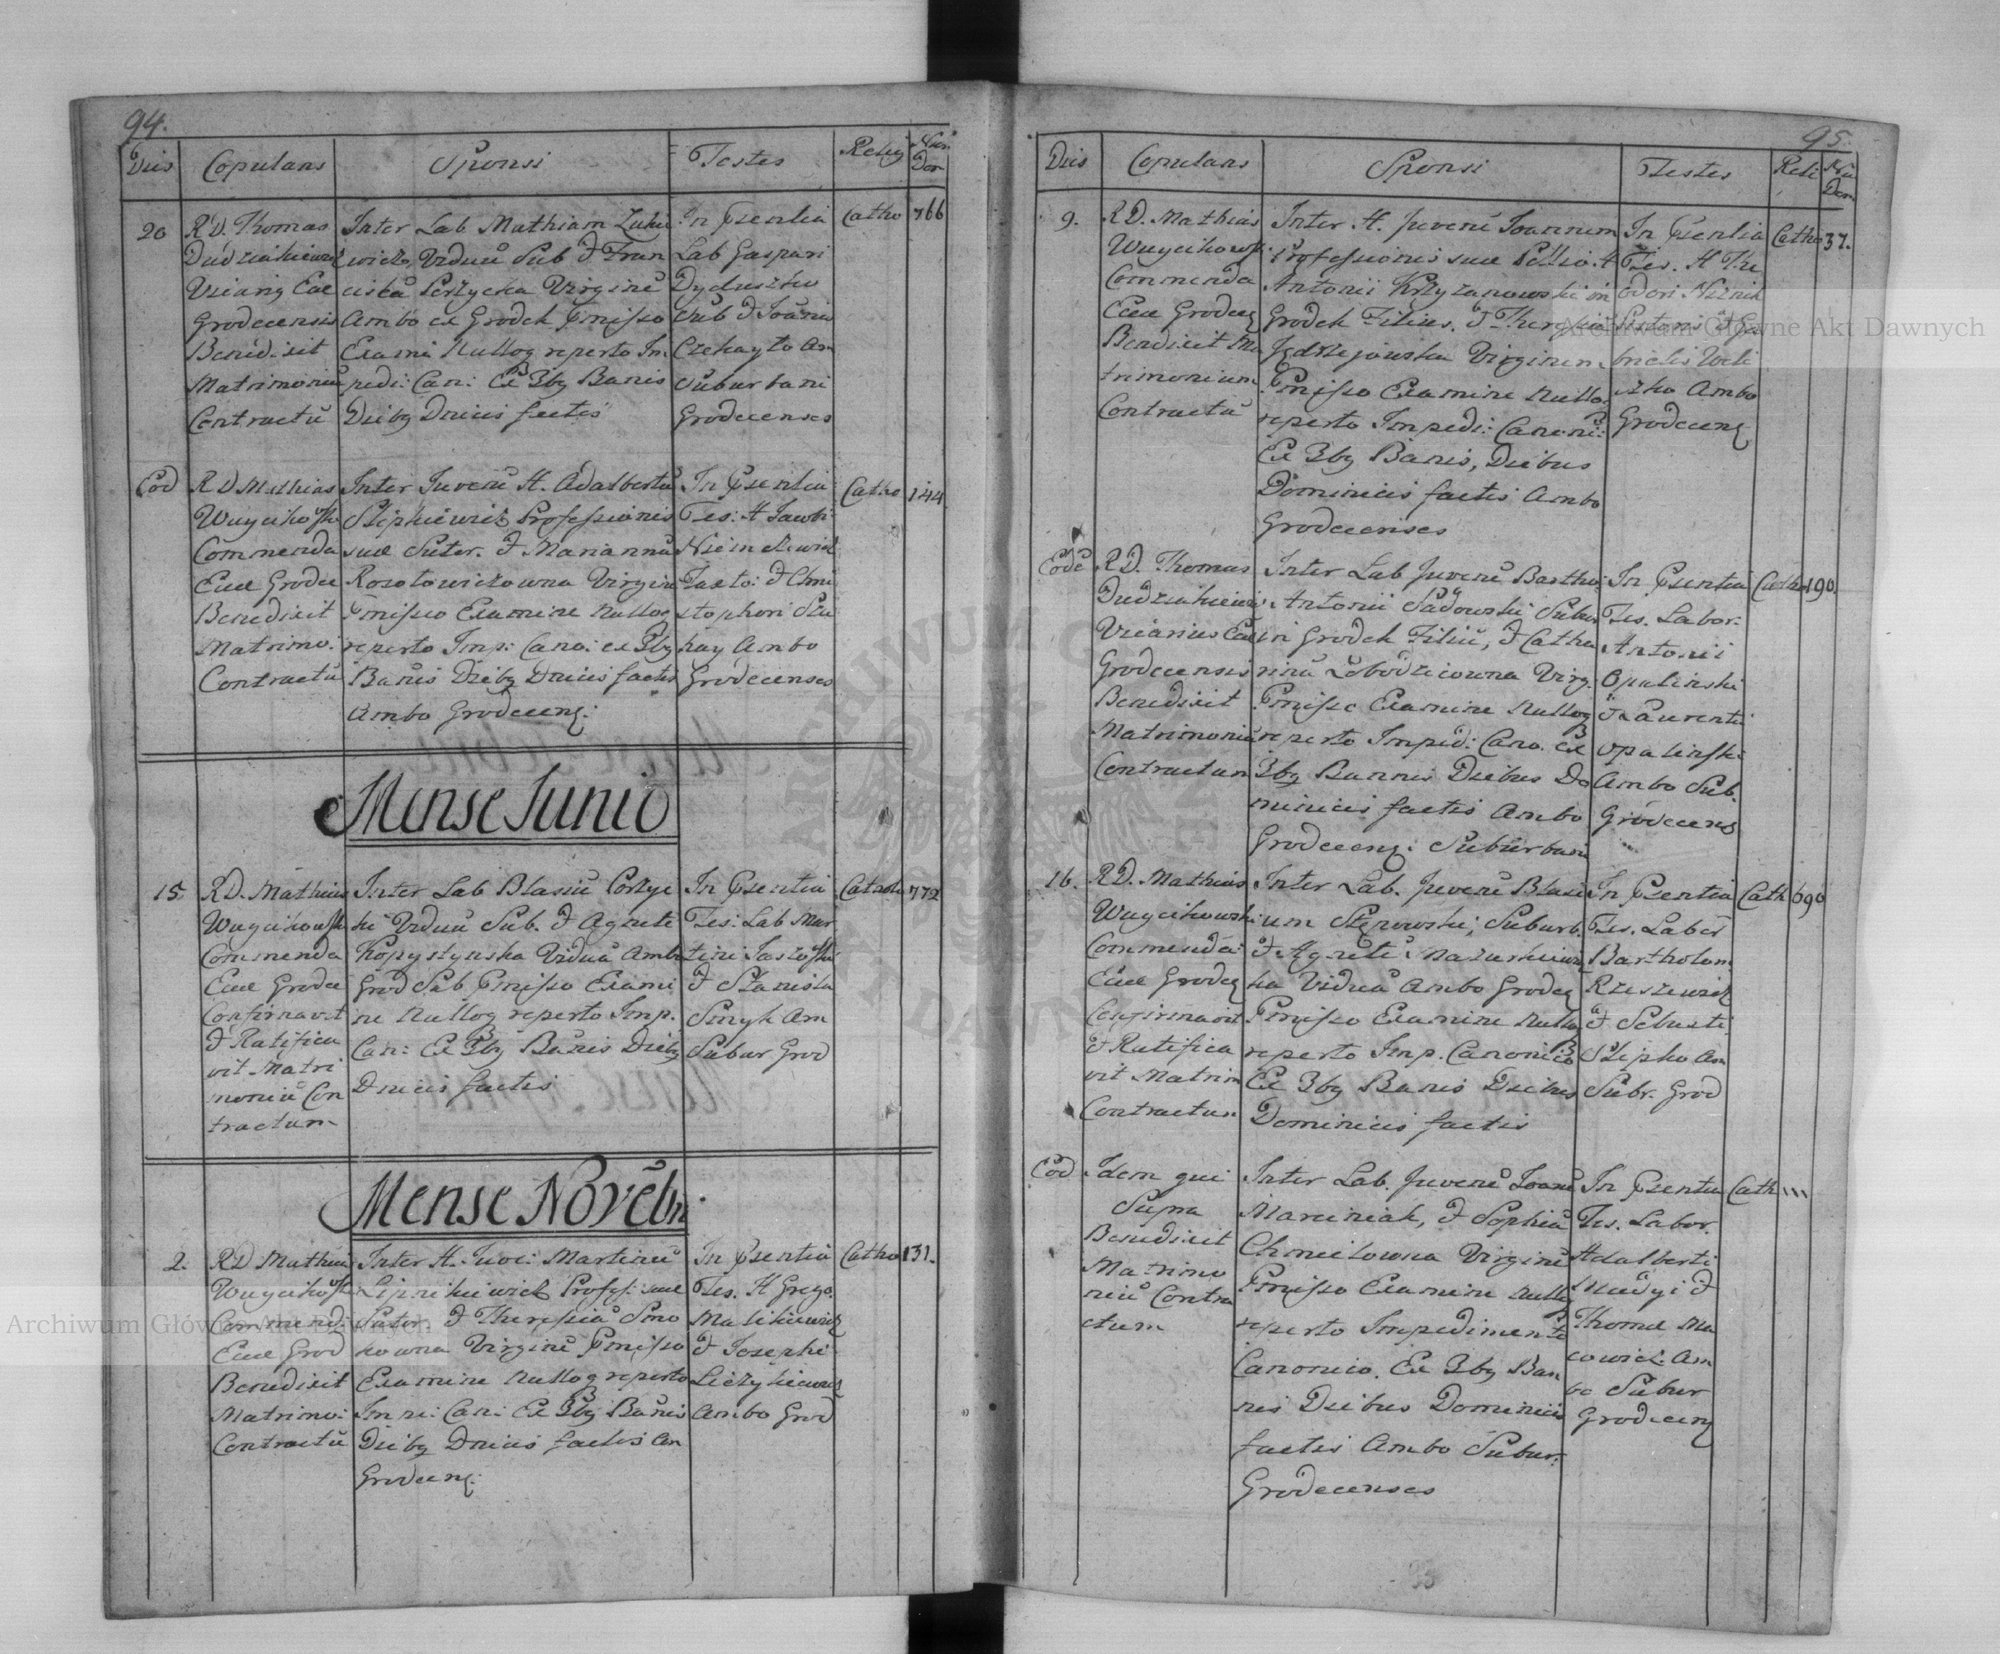 94.
Dies Copulans Sponsi Testes Relig Nu: Dom
20
R.D. Thomas
Dudziakiewicz
Vicariq Ecc
Grodecensis
Benedixit
Matrimoniū
Contractū
Inter Lab Mathiam Zukie
wicz, Viduū Sub & Fran
ciscā Perzycka Virginē
Ambo ex Grodek Pmisso
Exami Nulloq reperto Im
pedi: Can: Ex 3bq Banis
Diebq Dnicis factis
In Psentia
Lab Gaspari
Dyduszko
Sub & Joānis
Czekayło Am
Suburbani
Grodecenses
Catho
766
Eod
R D Mathias
Wuycikowski
Commenda
Ecce Grodec
Benedixit
Matrimo:
Contractū
Inter Juvenē H. Adalbertū
Stępkiewicz Professionis
suæ Suter. & Mariannā
Rosołowiczowna Virginē
Pmisso Examine Nulloq
reperto Imp: Cano: ex 3bq
Banis Diebq Dnicis factis
Ambo Grodecenq:
In Psentia
Tes: H Jacobi
Niemczewicz
& Chri
stophori Szu
kay Ambo
Grodecenses
Catho
144
Mense Junio
15.
R D. Mathias
Wuycikowski
Commenda
Ecce Grodec
Confirmavit
& Ratifica
vit Matri
moniū Con
tractum
Inter Lab Blasiū Porzyc
ki Viduū Sub. & Agnetē
Kopystynska Viduā Ambo
Grod Sub Pmisso Exami
ne Nulloq reperto Imp.
Can: Ex 3bq Banis Diebq
Dnicis factis
In Psentia
Tes: Lab Mar
tini Jasłoski
& Stanisla
Smyk Am
Subur Grod
Cathol
772
Mense Novēbri
2.
R D Mathias
Wuycikoski
Commend:
Ecce Grod
Benedixit
Matrimo:
Contractū
Inter H. Juve: Martinū
Lipnikiewicz Profess: suæ
Sutor. & Theresiā Smo
kowna Virginē Pmisso
Examine Nulloq reperto
Impe: Can: Ex 3bq Banis
Diebq Dnicis factis Am
Grodcenq:
In Psentia
Tes. H Grego.
Malikiewicz
& Josephi
Liczykiewicz
Ambo Grod
Catho
131.
95.
Dies Copulans Sponsi Testes Reli Nu Dom
9.
R D. Mathias
Wuycikowski
Commenda
Ecce Grodeq
Benedixit Ma
trimonium
Contractū
Inter H. Juvenē Joannem
Professionis suæ Pellio. H
Antonii Krzyżanowski in
Grodek Filius. & Theresia
Jędrzejowska Virginem
Pmisso Examine Nullo
reperto Impedi: Canoni:
Ex 3bq Banis, Diebus
Dominicis factis Ambo
Grodecenses
In Psentia
Tes. H The
odori Niznik
brielis Woti
szko Ambo
Grodecenq
Catho
37.
Eodē
R D. Thomas
Dudziakiewicz
Vicarius Ecce
Grodecensis
Benedixit
Matrimoniū
Contractum
Inter Lab Juvenē Bartho:
Antonii Sadowski Subur
in Grodek Filiū, & Catha
rinā Łobodzicowna Virg.
Pmisso Examine Nulloq
reperto Imped: Cano. ex
3bq Bannis Diebus Do
minicis factis Ambo
Grodecenq: Suburbani
In Psentia
Tes. Labor.
Antonii
Opalinski
& Laurentii
Opalinski
Ambo Sub.
Grodecenq
Cathol
190.
16.
R D. Mathias
Wuycikowski
Commenda:
Ecce Grodeq
Confirmavit
& Ratifica
vit Matrim
Contractum
Inter Lab. Juvenē Blasi
um Stępowski, Suburb.
& Agnetē Mazurkiewicz
ka Viduā Ambo Grodeq
Pmisso Examine Nulloq
reperto Imp. Canonico
Ex 3bq Banis Diebus
Dominicis factis
In Psentia
Tes. Labor
Bartholom
Rzeszewicz
& Sebasti
Stępko Am
Subr. Grod
Cath
690
Eod
Idem qui
Supra
Benedixit
Matrimo
niū Contra
ctum
Inter Lab. Juvenē Joanē
Marciniak, & Sophiā
Chmielowna Virginē
Pmisso Examine Nulloq
reperto Impedimento
Canonico. Ex 3bq Ban
nis Diebus Dominicis
factis Ambo Subur.
Grodecenses
In Psentia
Tes. Labor.
Adalberti
&
Thomæ Ma
cowicz Am
bo Subur
Grodecenq
Cath
111
Archiwum Główne Akt Dawnych
Archiwum Główne Akt Dawnych